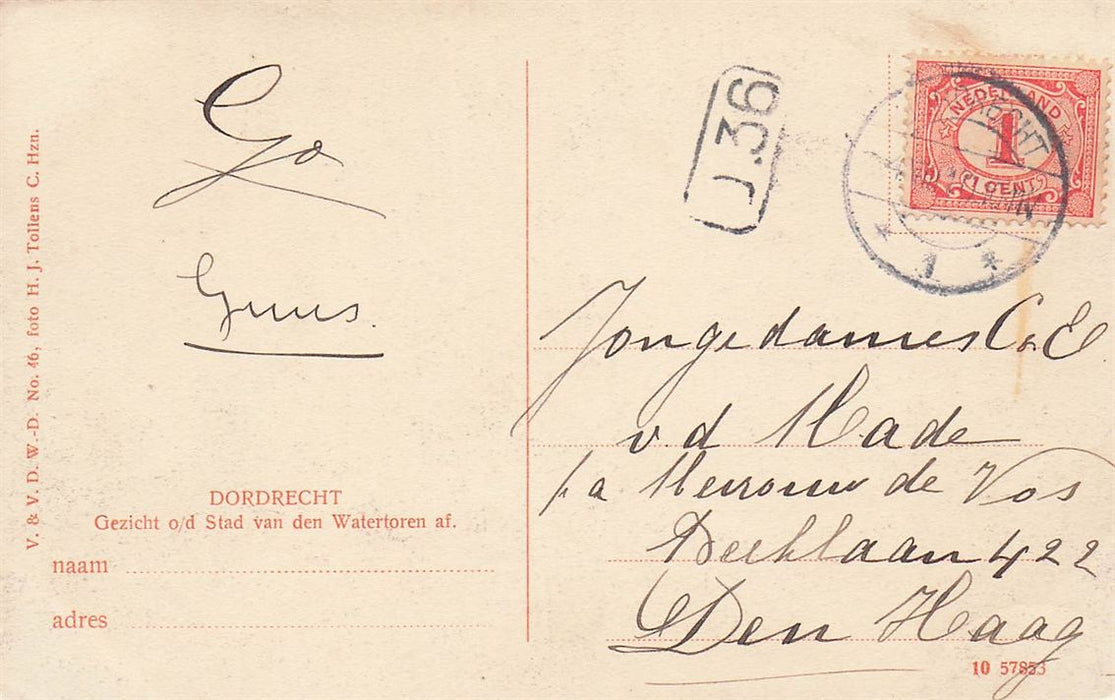 V. & V. D. W.-D. No. 46, foto H. J. Tollens C. Hzn.
Go
Guus.
DORDRECHT
Gezicht o/d Stad van den Watertoren af.
naam
adres
J.36
NEDERLAND
1
CENT
1
Jongedames C. E.
v.d Made
p.a Mevrouw de Vos
Beeklaan 422
Den Haag
10 57853